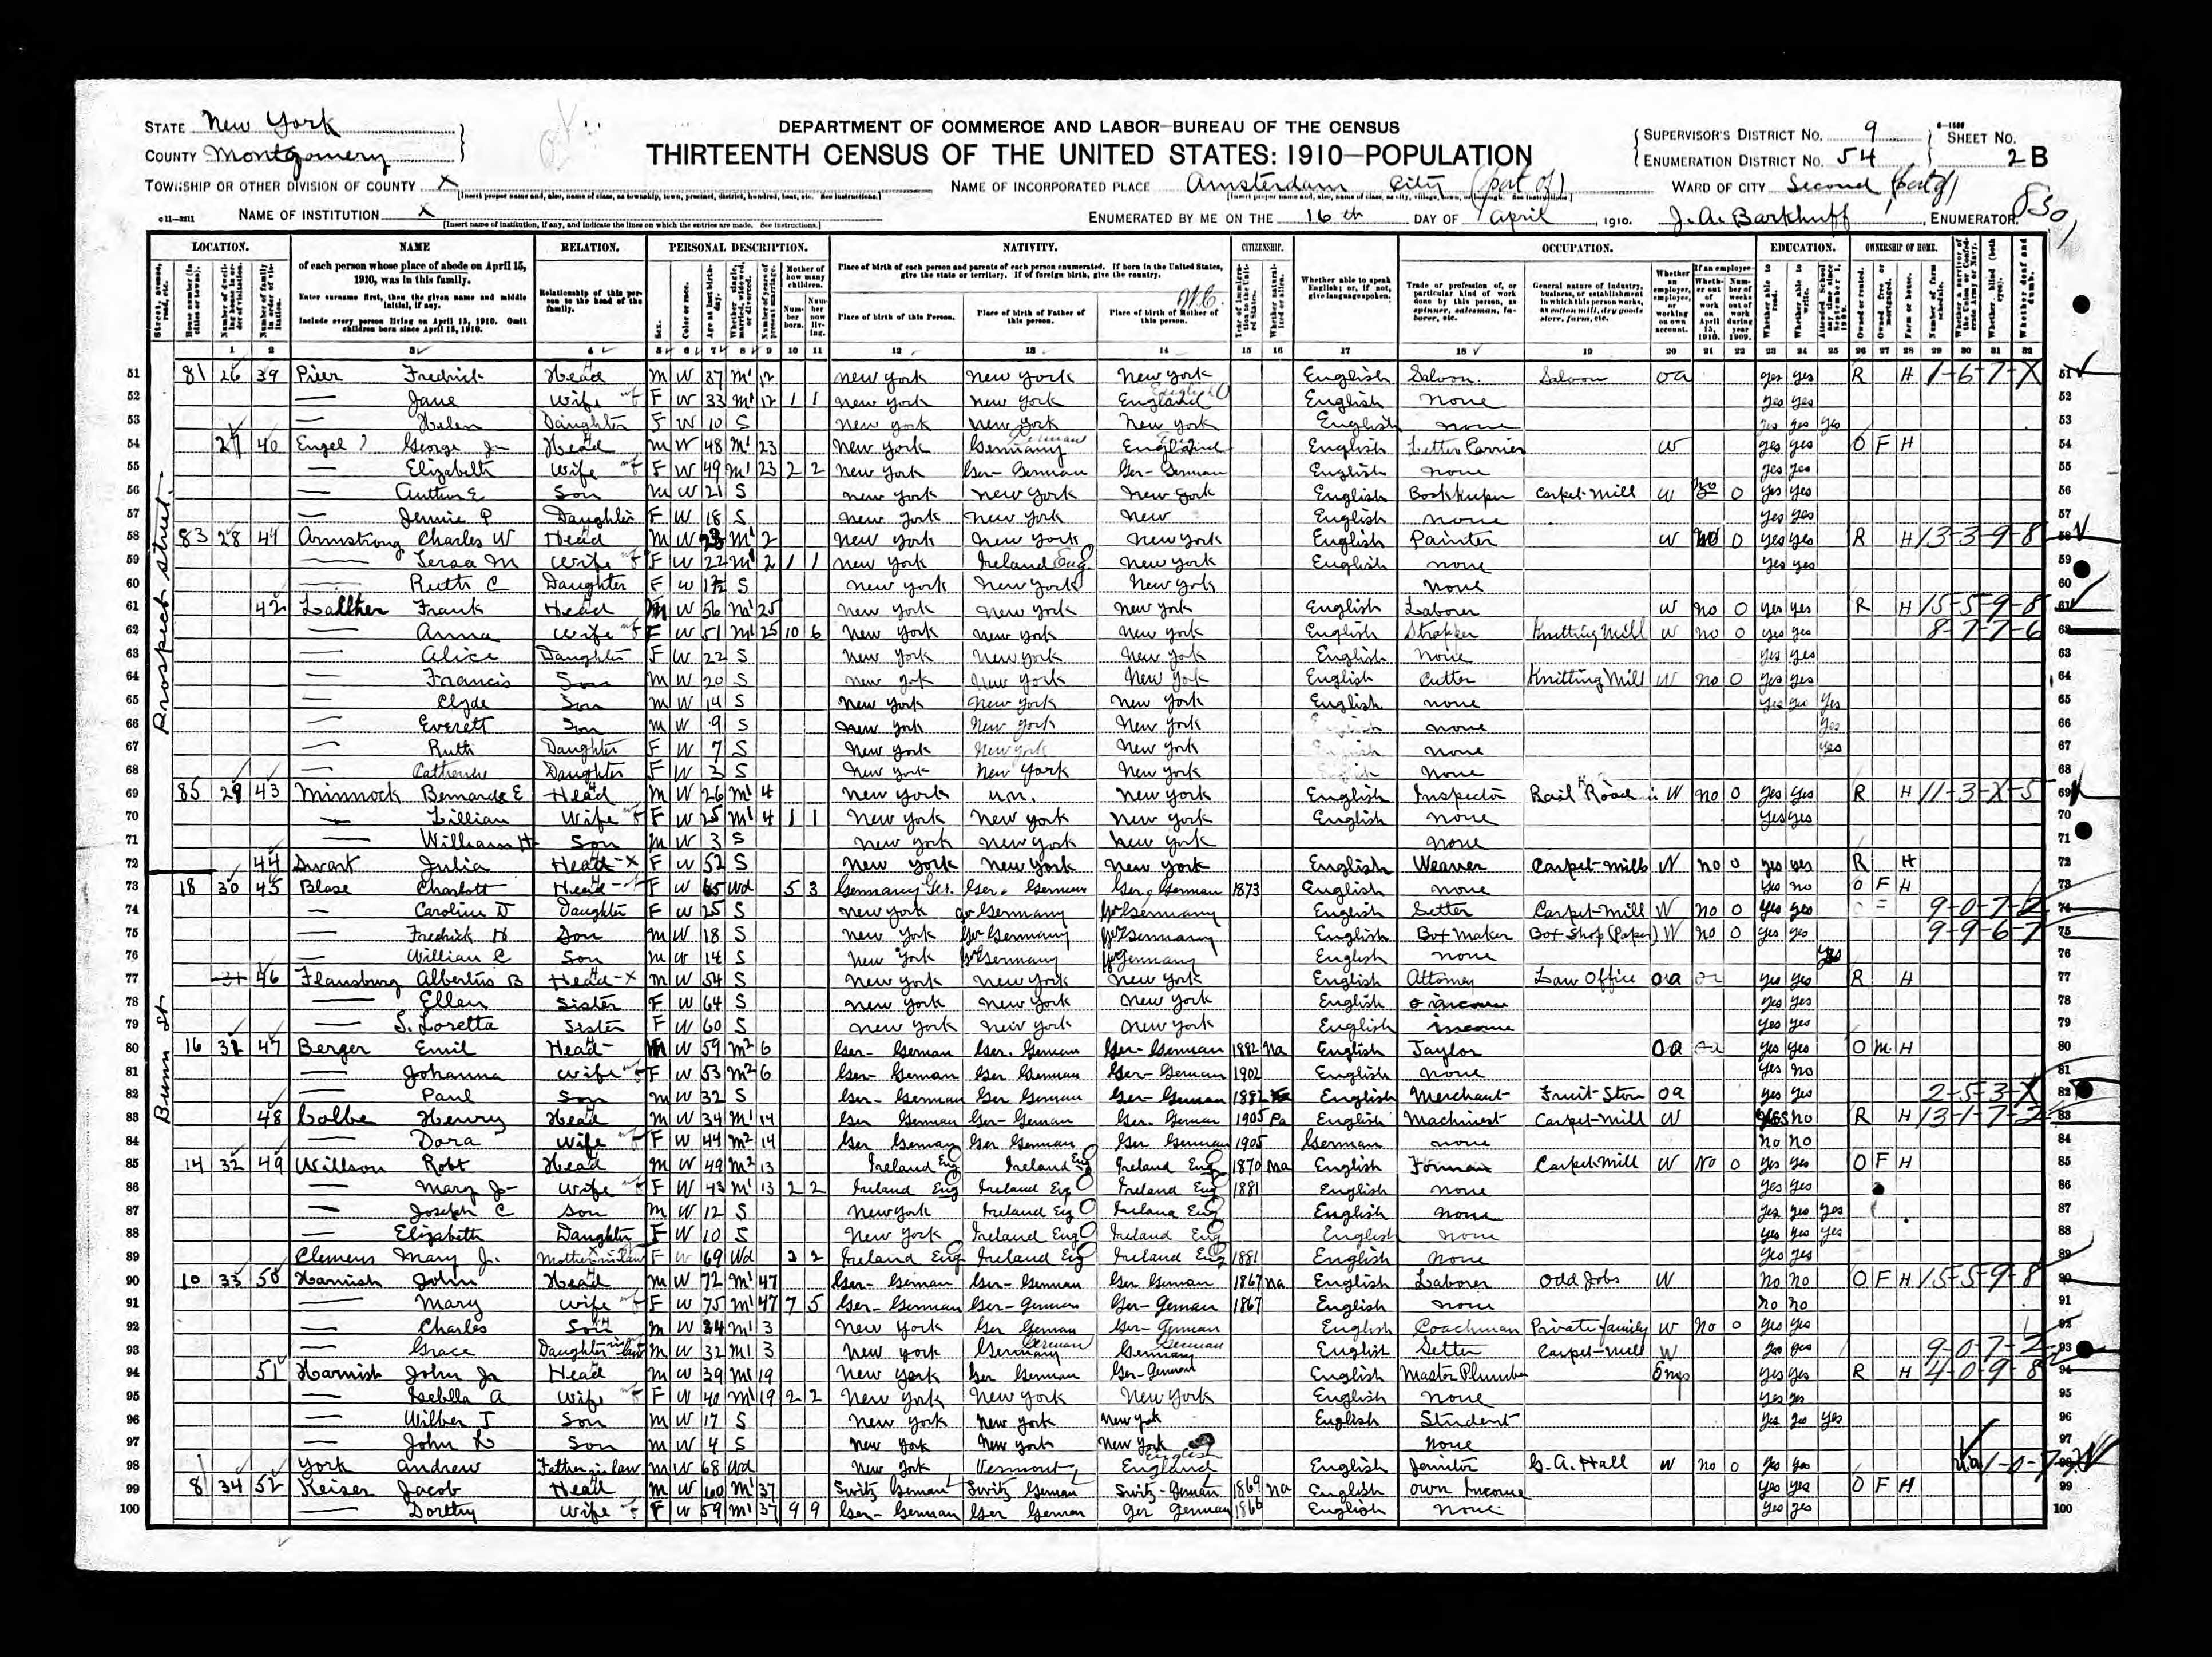 STATE New York
COUNTY Montgomery
TOWNSHIP OR OTHER DIVISION OF COUNTY X
[Insert proper name and, also, name of class, as township, town, precinct, district, hundred, beat, etc. See instructions.]
NAME OF INSTITUTION X
[Insert name of institution, if any, and indicate the lines on which the entries are made. See instructions.]
DEPARTMENT OF COMMERCE AND LABOR—BUREAU OF THE CENSUS
THIRTEENTH CENSUS OF THE UNITED STATES: 1910—POPULATION
NAME OF INCORPORATED PLACE Amsterdam City (part of)
ENUMERATED BY ME ON THE 16th DAY OF April, 1910. J. A. Barkhuff, ENUMERATOR.
SUPERVISOR'S DISTRICT No. 9
ENUMERATION DISTRICT No. 54
SHEET No. 2 B
WARD OF CITY Second (part of)
830
LOCATION. NAME RELATION. PERSONAL DESCRIPTION. NATIVITY. CITIZENSHIP. OCCUPATION. EDUCATION. OWNERSHIP OF HOME.
of each person whose place of abode on April 15, 1910, was in this family.
Enter surname first, then the given name and middle initial, if any.
Include every person living on April 15, 1910. Omit children born since April 15, 1910.
Relationship of this person to the head of the family.
Place of birth of each person and parents of each person enumerated. If born in the United States, give the state or territory. If of foreign birth, give the country.
Place of birth of this Person. Place of birth of Father of this person. Place of birth of Mother of this person.
Whether able to speak English; or, if not, give language spoken.
Prospect Street
51 81 26 39 Pier Fredrick Head M W 37 M1 12 New York New York New York English Saloon Saloon oa yes yes R H 1-6-7-X
52 — Jane Wife F W 33 M1 12 1 1 New York New York England English none yes yes
53 — Helen Daughter F W 10 S New York New York New York English none yes yes yes
54 27 40 Engel George Jr Head M W 48 M1 23 New York Germany England English Letter Carrier W yes yes O F H
55 — Elizabeth Wife F W 49 M1 23 2 2 New York Ger-German Ger-German English none yes yes
56 — Son M W 21 S New York New York New York English Bookkeeper Carpet-Mill W no 0 yes yes
57 — Jennie P Daughter F W 18 S New York New York New English none yes yes
58 83 28 41 Armstrong Charles W Head M W M1 2 New York New York New York English Painter W no 0 yes yes R H 13-3-9-8
59 — Tersa M Wife F W 22 M1 2 1 1 New York Ireland Eng New York English none yes yes
60 — Ruth C Daughter F W S New York New York New York none
61 42 Frank Head M W 56 M1 25 New York New York New York English Laborer W no 0 yes yes R H 15-5-9-8
62 — Anna Wife F W 51 M1 25 10 6 New York New York New York English Knitting Mill W no 0 yes yes 8-7-7-6
63 — Alice Daughter F W 22 S New York New York New York English none yes yes
64 — Francis Son M W 20 S New York New York New York English Cutter Knitting Mill W no 0 yes yes
65 — Clyde Son M W 14 S New York New York New York English none yes yes yes
66 — Everett Son M W 9 S New York New York New York none yes
67 — Ruth Daughter F W 7 S New York New York New York none yes
68 — Catherine Daughter F W 3 S New York New York New York none
69 85 29 43 Minnock Bernarde E Head M W 26 M1 4 New York un. New York English Inspector Rail Road W no 0 yes yes R H 11-3-X-5
70 — Lillian Wife F W 25 M1 4 1 1 New York New York New York English none yes yes
71 — William H Son M W 3 S New York New York New York none
72 44 Swart Julia Head F W 52 S New York New York New York English Weaver Carpet-mill W no 0 yes yes R H
Bunn St
73 18 30 45 Blase Charlott Head F W 65 Wd 5 3 Germany Ger. Ger. German Ger. German 1873 English none yes no O F H
74 — Caroline D Daughter F W 25 S New York Ger Germany Ger Germany English Setter Carpet-Mill W no 0 yes yes 9-0-7-2
75 — Fredrick H Son M W 18 S New York Ger Germany Ger Germany English Box Maker Box Shop (Paper) W no 0 yes yes 9-9-6-7
76 — William C Son M W 14 S New York Ger Germany Ger Germany English none yes
77 31 46 Flansburg Albertus B Head M W 54 S New York New York New York English Attorney Law Office oa yes yes R H
78 — Ellen Sister F W 64 S New York New York New York English income yes yes
79 — S. Loretta Sister F W 60 S New York New York New York English income yes yes
80 16 31 47 Berger Emil Head M W 59 M2 6 Ger-German Ger. German Ger-German 1882 Na English Taylor oa yes yes O M H
81 — Johanna Wife F W 53 M2 6 Ger-German Ger German Ger-German 1902 English none yes no
82 — Paul Son M W 32 S Ger-German Ger German Ger-German 1882 Na English Merchant Fruit Stor oa yes yes 2-5-3-X
83 48 Colbe Henry Head M W 34 M1 14 Ger German Ger-German Ger. German 1905 Pa English Machinist Carpet-Mill W yes no R H 13-1-7-2
84 — Dora Wife F W 44 M2 14 Ger German Ger German Ger German 1905 German none no no
85 14 32 49 Willson Robt Head M W 49 M2 13 Ireland Eng Ireland Eng Ireland Eng 1870 Na English Forman Carpet Mill W no 0 yes yes O F H
86 — Mary J Wife F W 43 M1 13 2 2 Ireland Eng Ireland Eng Ireland Eng 1881 English none yes yes
87 — Joseph C Son M W 12 S New York Ireland Eng Ireland Eng English none yes yes yes
88 — Elizabeth Daughter F W 10 S New York Ireland Eng Ireland Eng English none yes yes yes
89 Clemens Mary J. Mother-in-law F W 69 Wd 2 Ireland Eng Ireland Eng Ireland Eng 1881 English none yes yes
90 10 33 50 Harnish John Head M W 72 M1 47 Ger-German Ger-German Ger German 1867 na English Laborer Odd Jobs W no no O F H 15-5-9-8
91 — Mary Wife F W 75 M1 47 7 5 Ger-German Ger-German Ger-German 1867 English none no no
92 — Charles Son M W 34 M1 3 New York Ger German Ger-German English Coachman Private family W no 0 yes yes
93 — Grace Daughter in law M W 32 M1 3 New York Germany Germany English Setter Carpet-mill W yes yes 9-0-7-2
94 51 Harnish John Jr Head M W 39 M1 19 New York Ger German Ger-German English Master Plumber Emp yes yes R H 4-0-9-8
95 — Isebella A Wife F W 40 M1 19 2 2 New York New York New York English none yes yes
96 — Wilber J Son M W 17 S New York New York New York English Student yes yes yes
97 — John L Son M W 4 S New York New York New York none
98 York Andrew Father in law M W 68 Wd New York Vermont England English Janitor G. A. Hall W no 0 yes yes
99 8 34 52 Keiser Jacob Head M W 60 M1 37 Switz German Switz German Switz-German 1869 na English own Income yes yes O F H
100 — Dorethy Wife F W 59 M1 37 9 9 Ger-German Ger German Ger German 1866 English none yes yes